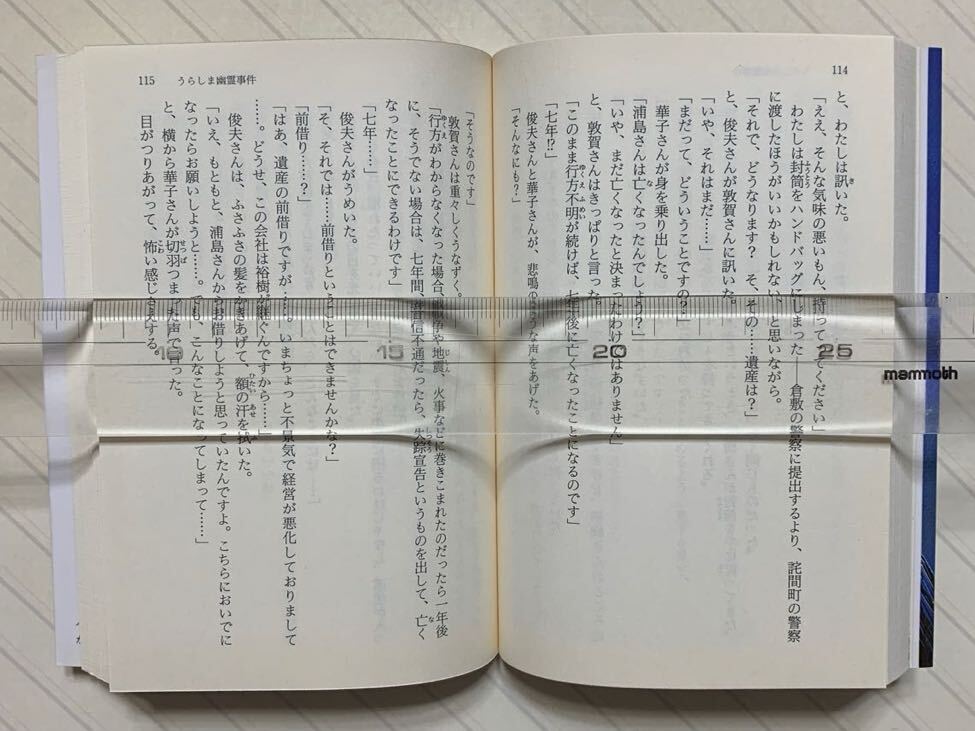 114
と、わたしは訊いた。
「ええ、そんな気味の悪いもん、持ってってください」
わたしは封筒をハンドバッグにしまった――倉敷の警察に提出するより、詫間町の警察
に渡したほうがいいかもしれない、と思いながら。
「それで、どうなります？　そ、その……遺産は？」
と、俊夫さんが敦賀さんに訊いた。
「いや、それはまだ……」
「まだって、どういうことですの？」
華子さんが身を乗り出した。
「浦島さんは亡くなったんでしょう？」
「いや、まだ亡くなったと決まったわけではありません」
と、敦賀さんはきっぱりと言った。
「このまま行方不明が続けば、七年後に亡くなったことになるのです」
「七年!?」
俊夫さんと華子さんが、悲鳴のような声をあげた。
「そんなにも？」
115　うらしま幽霊事件
「そうなのです」
敦賀さんは重々しくうなずく。
「行方がわからなくなった場合、戦争や地震、火事などに巻きこまれたのだったら一年後
に、そうでない場合は、七年間、音信不通だったら、失踪宣告というものを出して、亡く
なったことにできるわけです」
「七年……」
俊夫さんがうめいた。
「そ、それでは……前借りということはできませんかな？」
「前借り……？」
「はあ、遺産の前借りですが……。いまちょっと不景気で経営が悪化しておりまして
……。どうせ、この会社は裕樹が継ぐんですから……」
俊夫さんは、ふさふさの髪をかきあげて、額の汗を拭いた。
「いえ、もともと、浦島さんからお借りしようと思っていたんですよ。こちらにおいでに
なったらお願いしようと……。でも、こんなことになってしまって……」
と、横から華子さんが切羽つまった声で言った。
目がつりあがって、怖い感じさえする。
15
20
25
mammoth